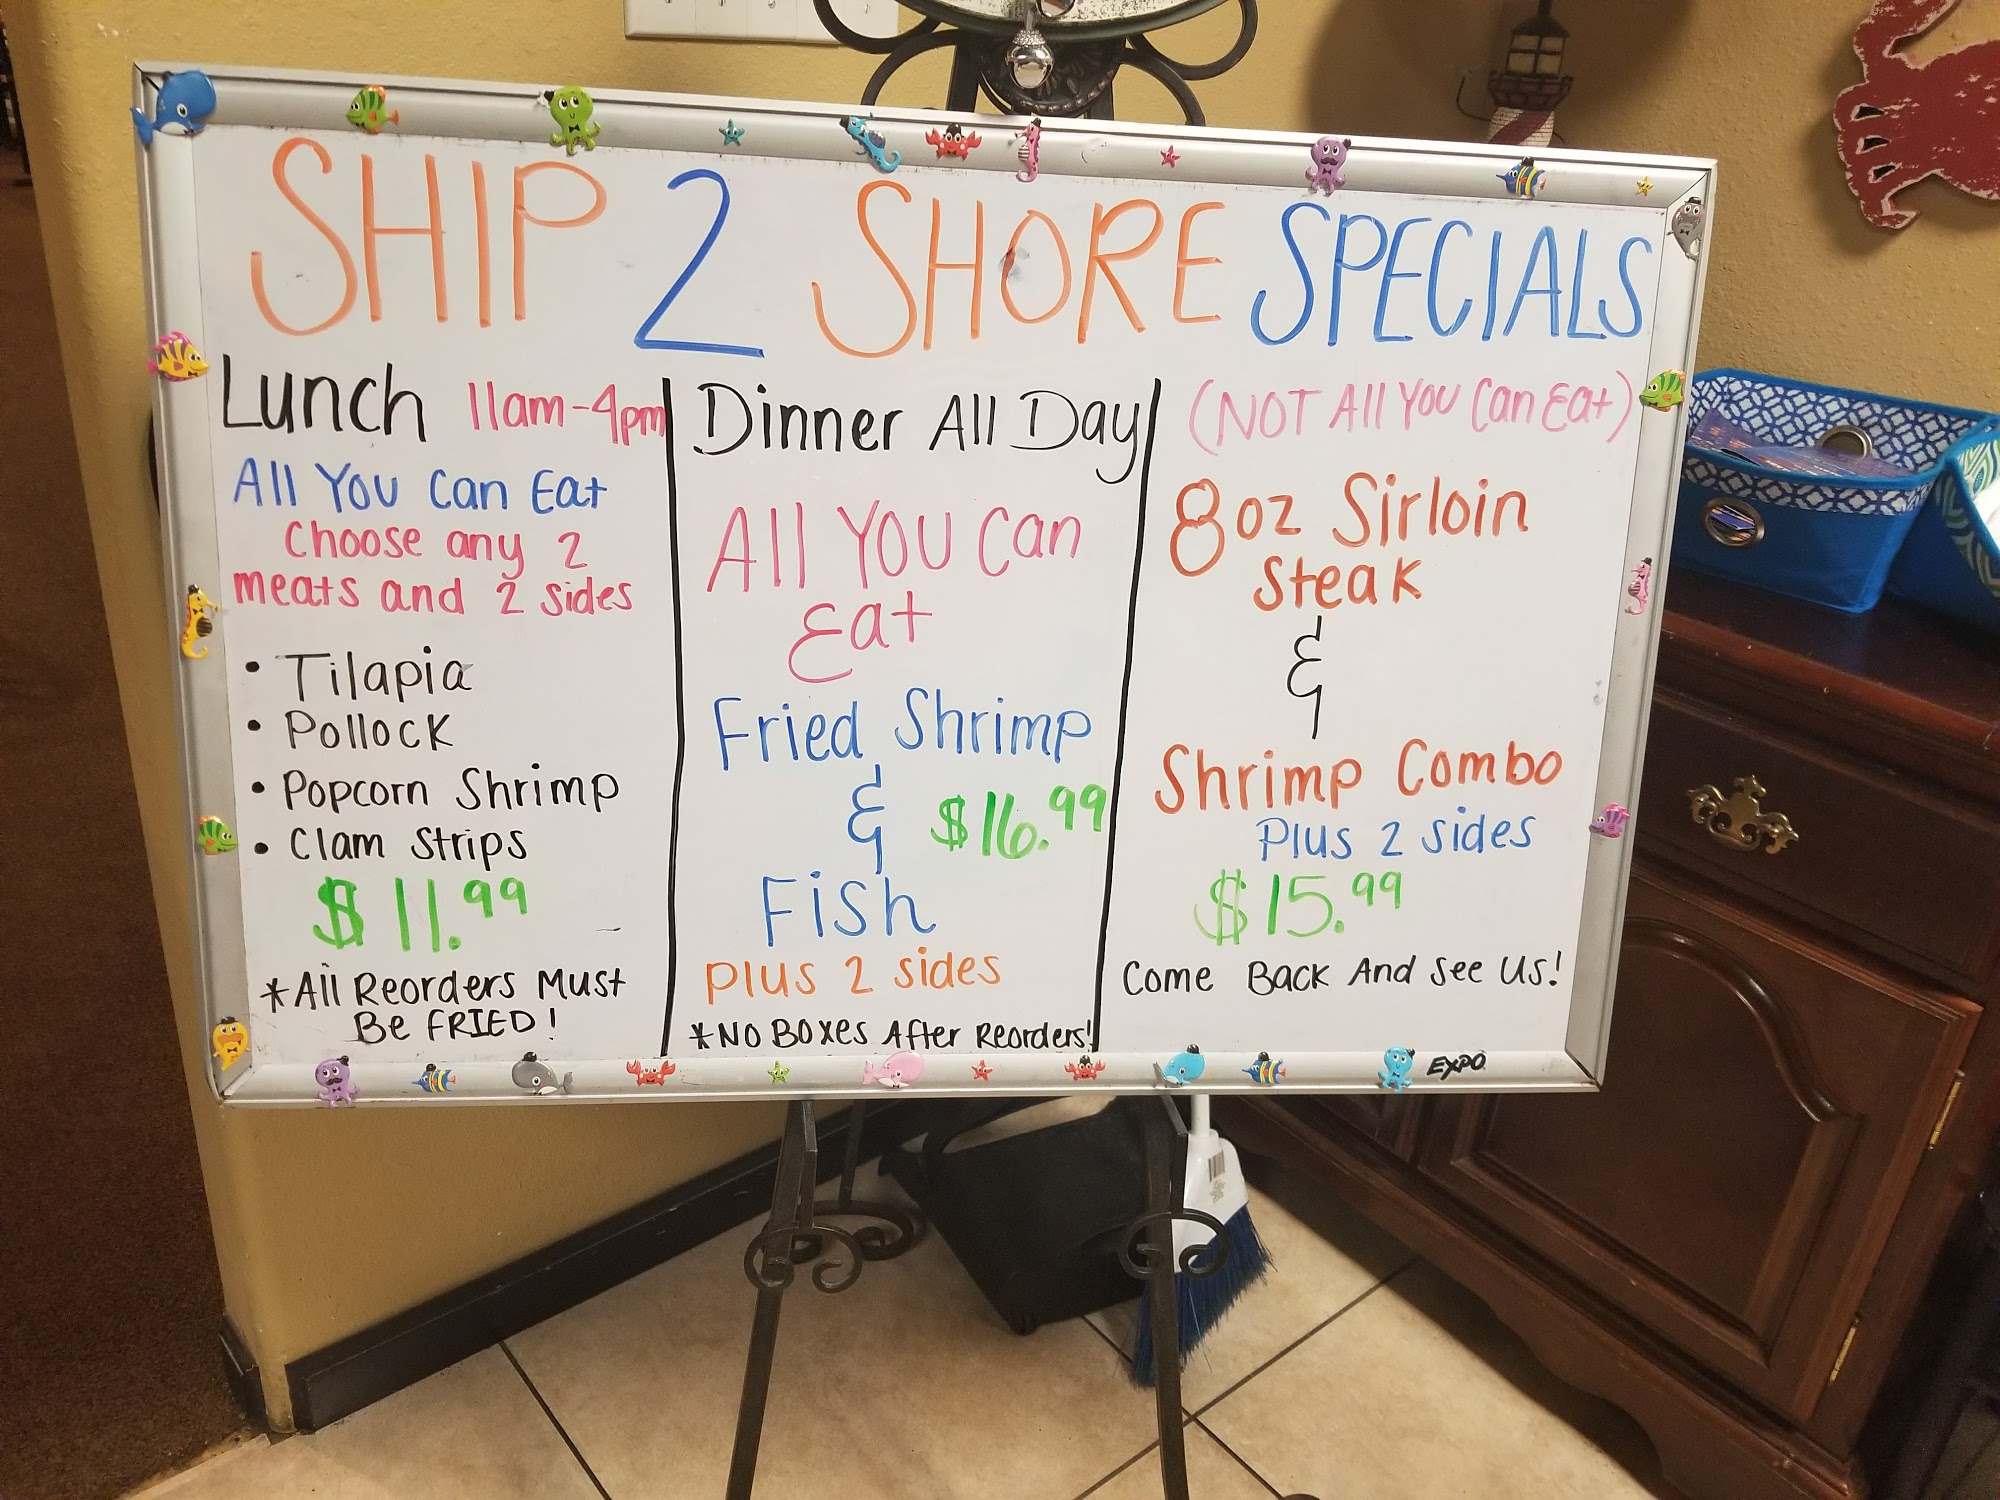 SHIP 2 SHORE SPECIALS
Lunch 11am-4pm
All You Can Eat
Choose any 2
meats and 2 sides
• Tilapia
• Pollock
• Popcorn Shrimp
• Clam Strips
$11.99
*All Reorders Must
Be FRIED!
Dinner All Day
All You Can
Eat
Fried Shrimp
& $16.99
Fish
Plus 2 sides
*No Boxes After Reorders!
(NOT All You Can Eat)
8oz Sirloin
Steak
&
Shrimp Combo
Plus 2 sides
$15.99
Come Back And See Us!
EXPO